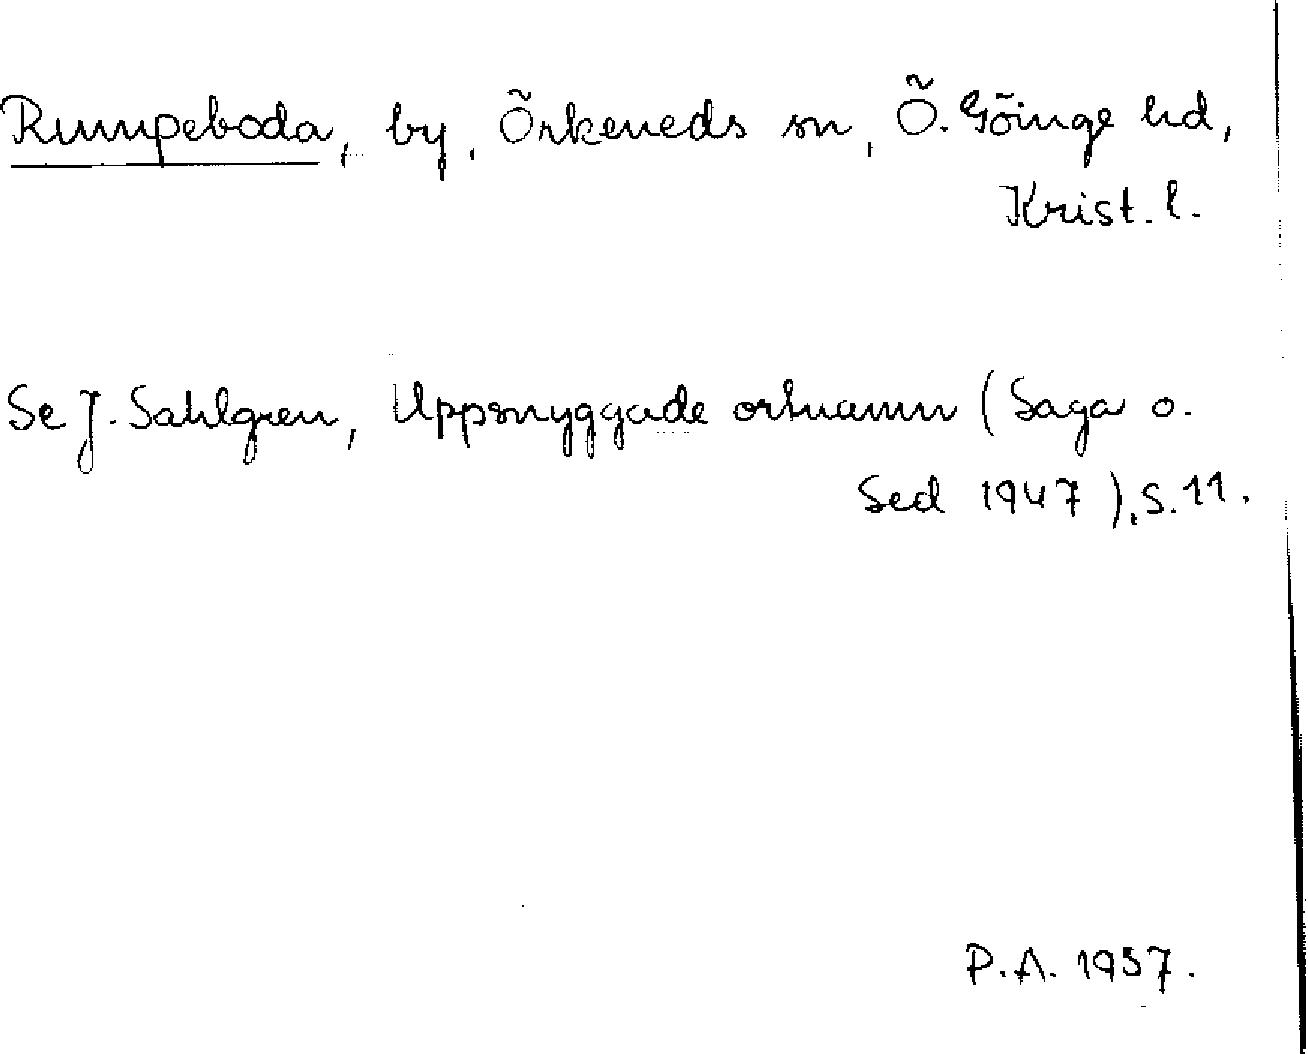 Rumpeboda, by, Örkeneds sn, Ö. Göinge hd,
Krist. l.
Se J. Sahlgren, Uppsnyggade ortnamn (Saga o.
Sed 1947), s. 11.
P.A. 1957.